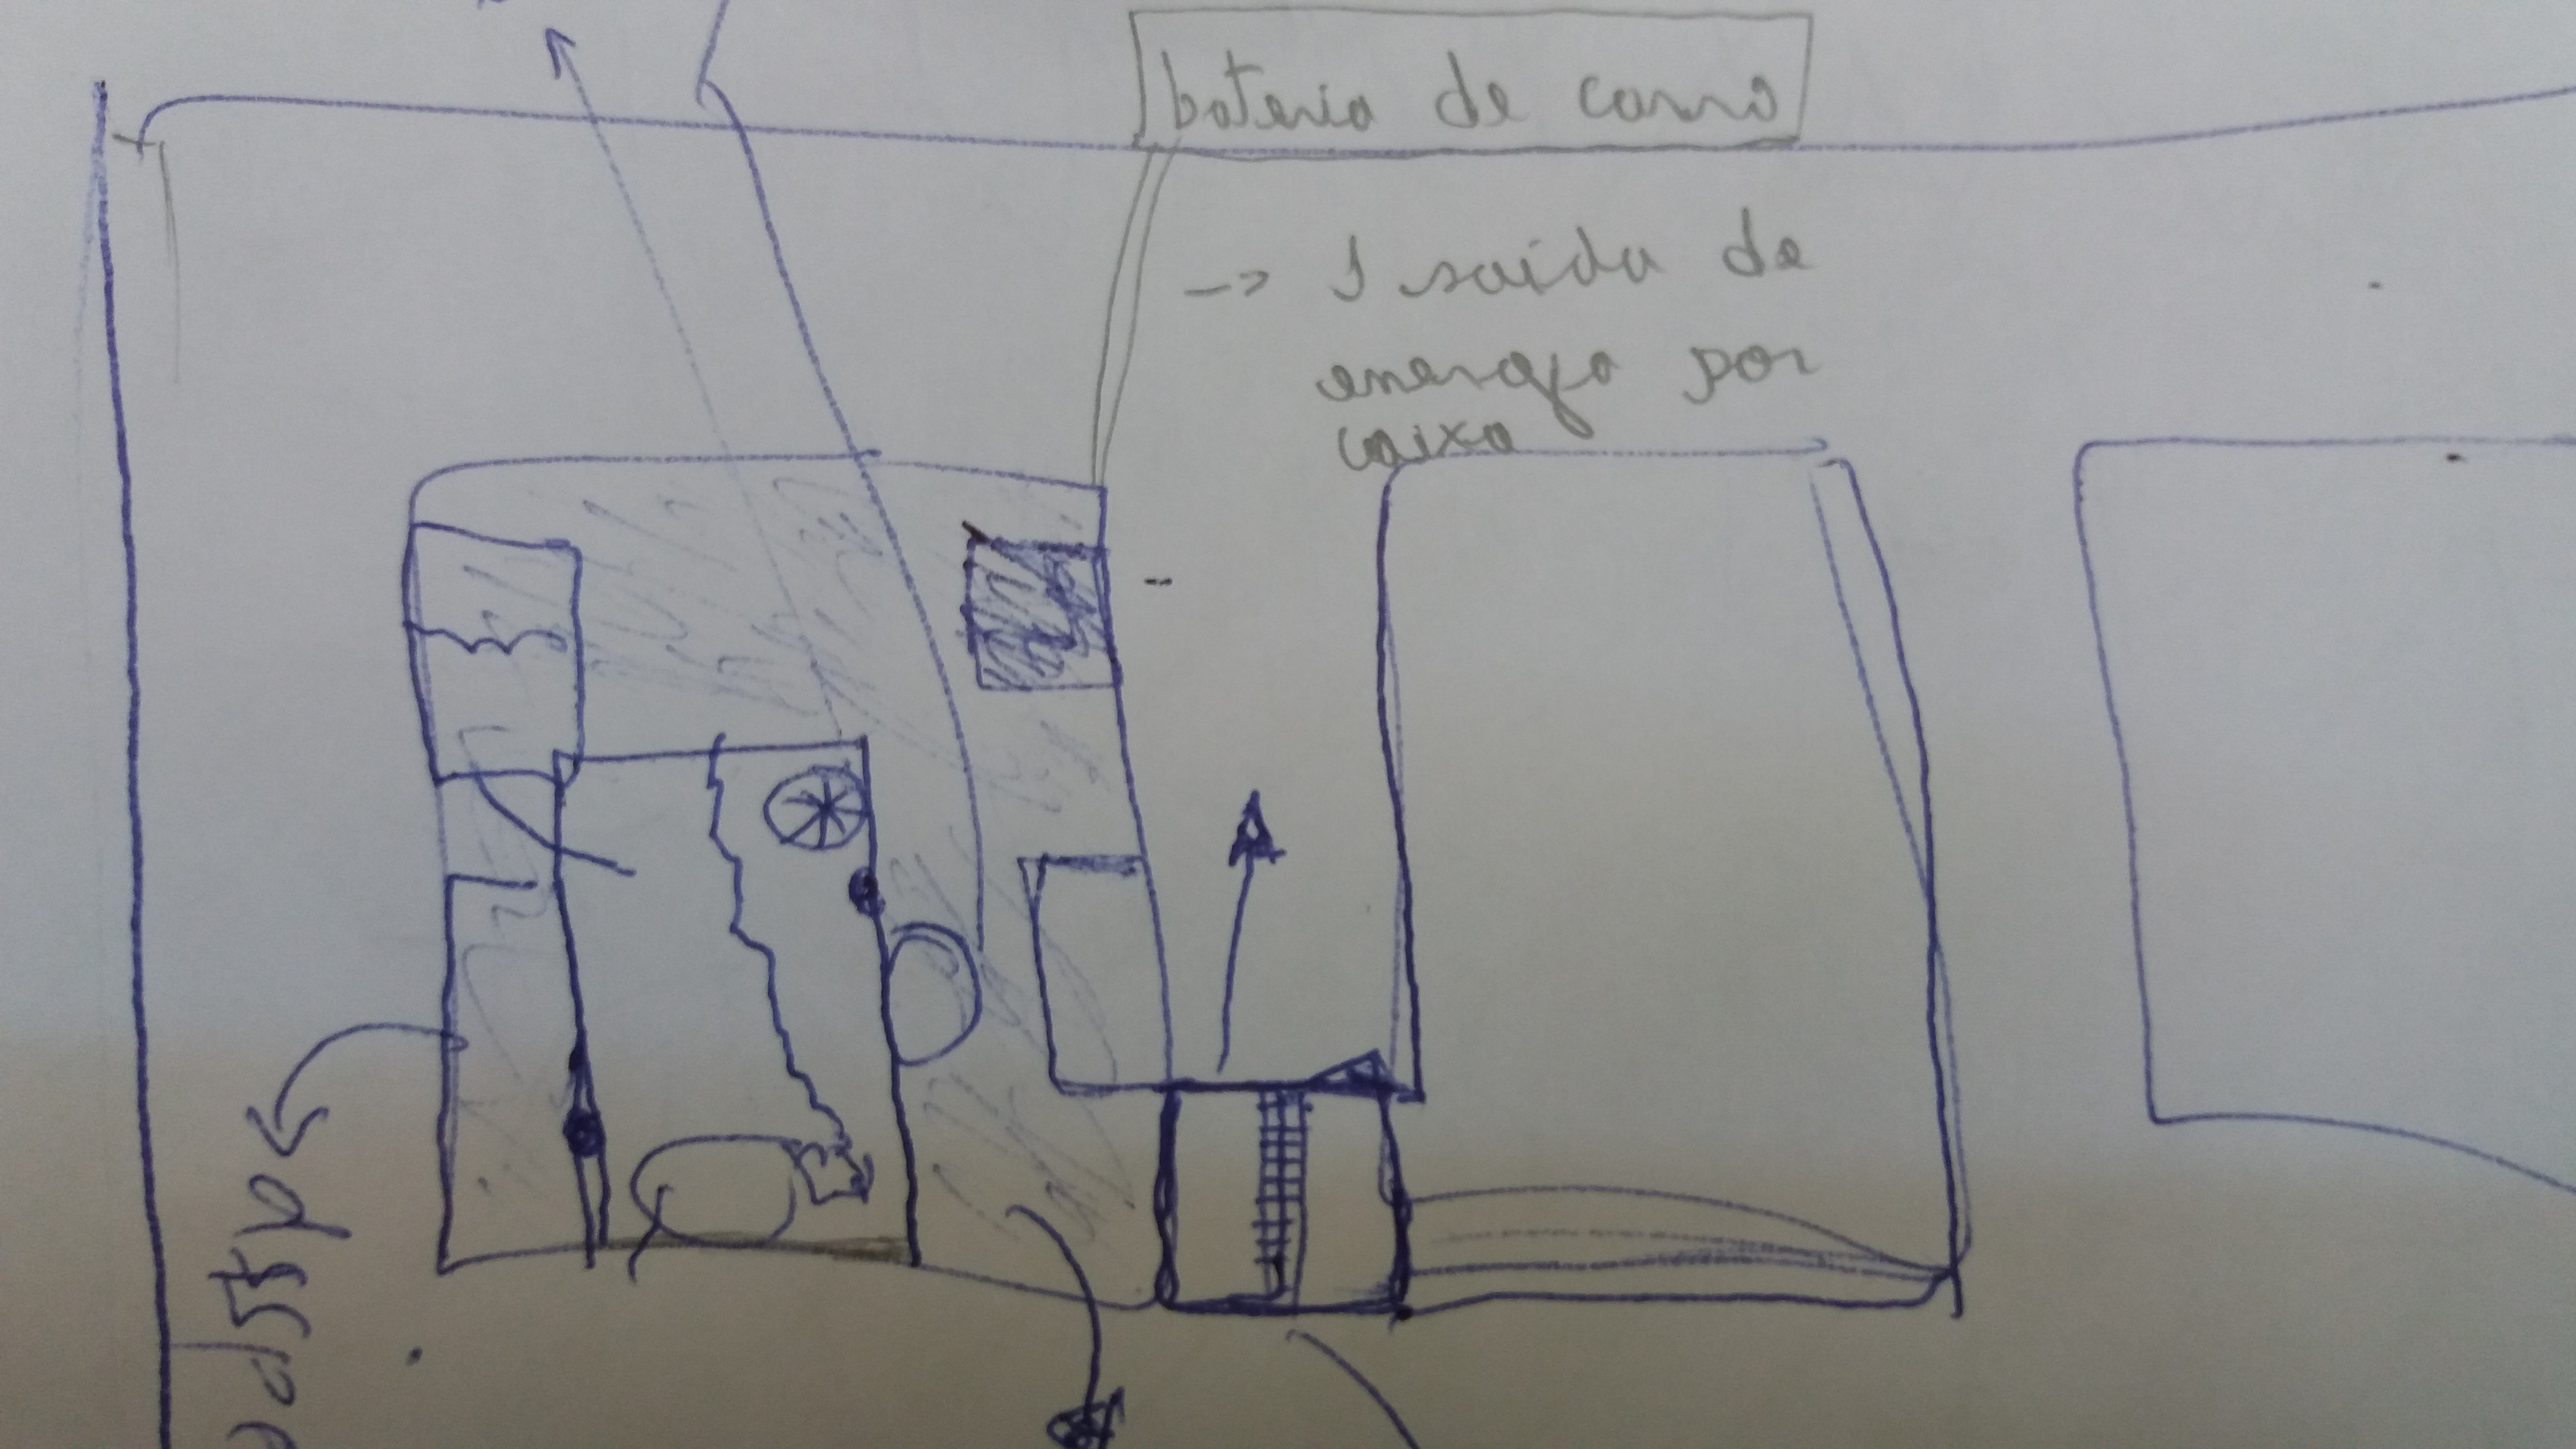 bateria de carro
-> 1 saída de
energia por
caixa